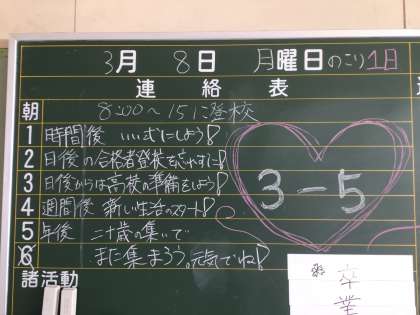 3月 8日 月曜日のこり1日
連絡表
朝 8:00〜15に登校
1 時間後 いい式にしよう!
2 日後の合格者登校を忘れずに!
3 日後からは高校の準備をしよう!
4 週間後 新しい生活のスタート!
5 年後 二十歳の集いで
6 また集まろう。元気でね!
諸活動
3-5
卒業